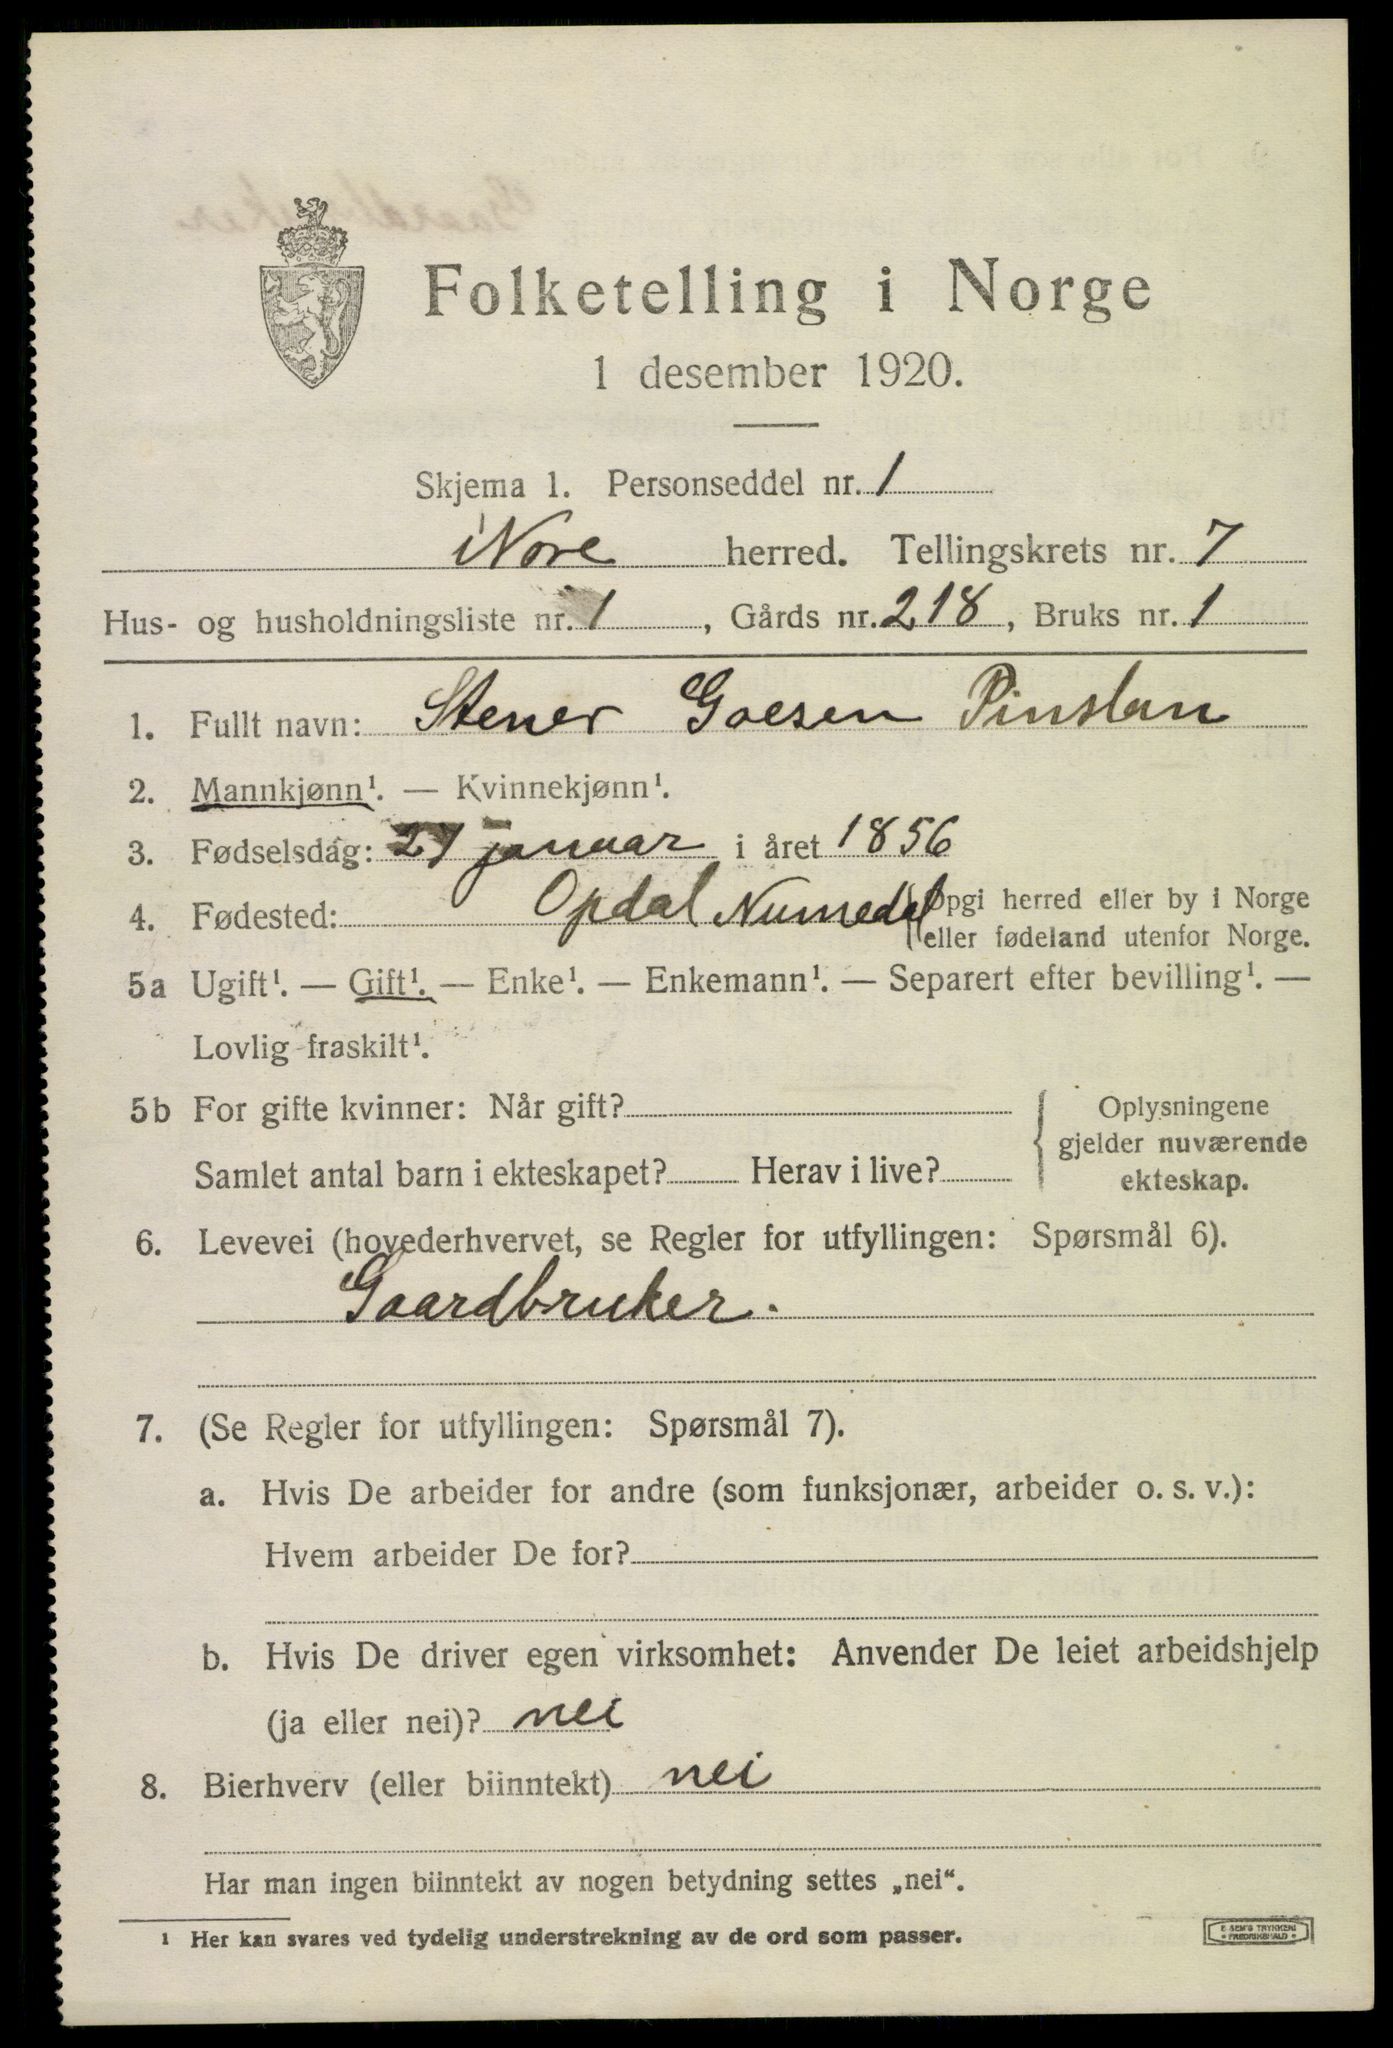 Folketelling i Norge
1 desember 1920.
Skjema 1. Personseddel nr. 1
Nore herred. Tellingskrets nr. 7
Hus- og husholdningsliste nr. 1, Gårds nr. 218, Bruks nr. 1
1. Fullt navn: Stener Goesen Pinslan
2. Mannkjønn¹. — Kvinnekjønn¹.
3. Fødselsdag: 27 januar i året 1856
4. Fødested: Opdal Numedal (Opgi herred eller by i Norge
eller fødeland utenfor Norge.
5a Ugift¹. — Gift¹. — Enke¹. — Enkemann¹. — Separert efter bevilling¹. —
Lovlig fraskilt¹.
5b For gifte kvinner: Når gift?
Samlet antal barn i ekteskapet? Herav i live?
Oplysningene
gjelder nuværende
ekteskap.
6. Levevei (hovederhvervet, se Regler for utfyllingen: Spørsmål 6).
Gaardbruker.
7. (Se Regler for utfyllingen: Spørsmål 7).
a. Hvis De arbeider for andre (som funksjonær, arbeider o. s. v.):
Hvem arbeider De for?
b. Hvis De driver egen virksomhet: Anvender De leiet arbeidshjelp
(ja eller nei)? nei
8. Bierhverv (eller biinntekt) nei
Har man ingen biinntekt av nogen betydning settes „nei“.
¹ Her kan svares ved tydelig understrekning av de ord som passer.